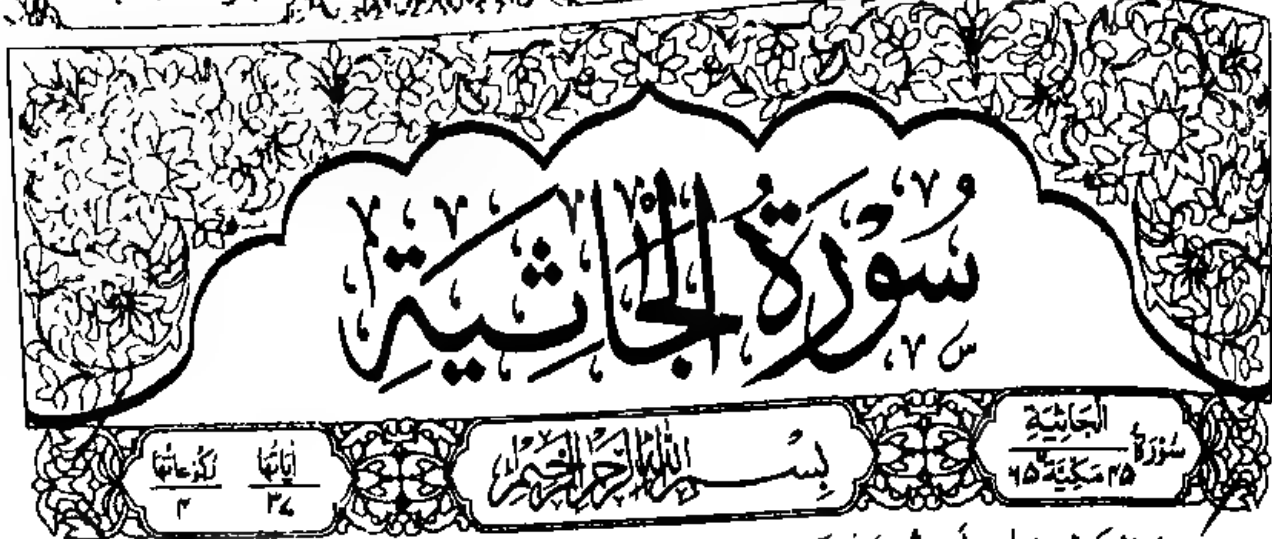 سُوْرَةُ الْجَاثِيَةِ
سُوْرَةُ الْجَاثِيَةِ ٤٥ مَكِّيَّةٌ ٦٥
بِسْمِ اللّٰهِ الرَّحْمٰنِ الرَّحِيْمِ
اٰيَاتُهَا ٣٧
رُكُوْعَاتُهَا ٤